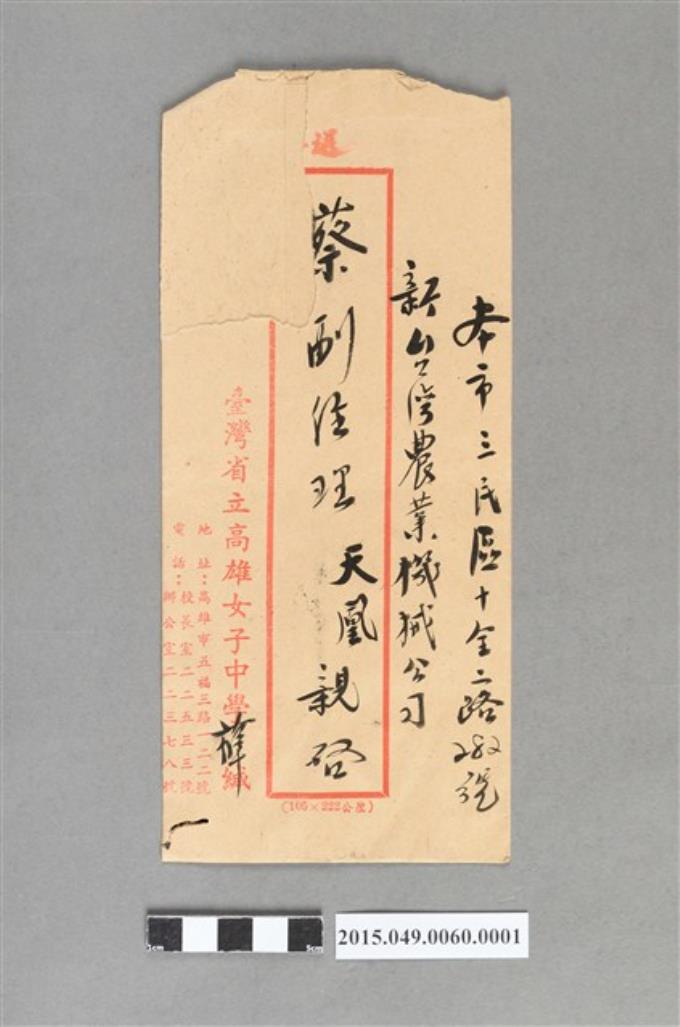 送
本市三民區十全二路282號
新台灣農業機械公司
蔡副經理 天凰 親啓
臺灣省立高雄女子中學 薛 緘
地址：高雄市五福三路一二二號
電話：校長室二二五三三號
辦公室二二三七八號
(105×222公厘)
1cm
5cm
2015.049.0060.0001